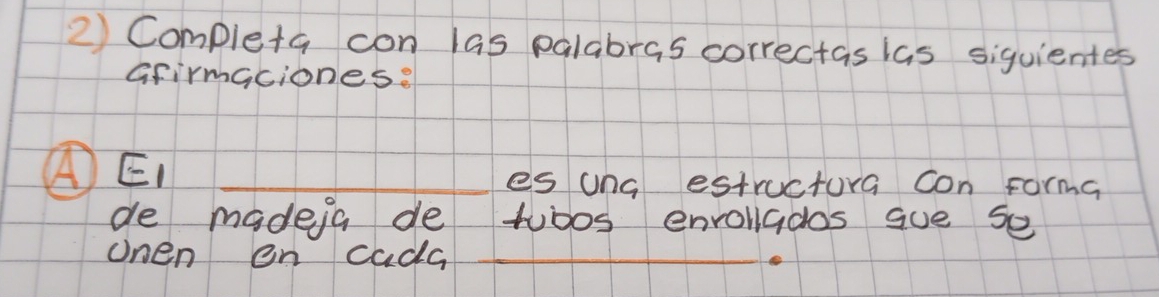 2) Completa con las palabras correctas las siguientes
afirmaciones:
A) El __________ es una estructura con forma
de madeja de tubos enrollados que se
unen en cada __________.